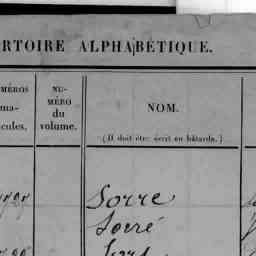 RTOIRE ALPHABÉTIQUE.
MÉROS
ma-
cules.
NU-
MÉRO
du
volume.
NOM.
(Il doit être écrit en bâtarde.)
Sorre
Sorré